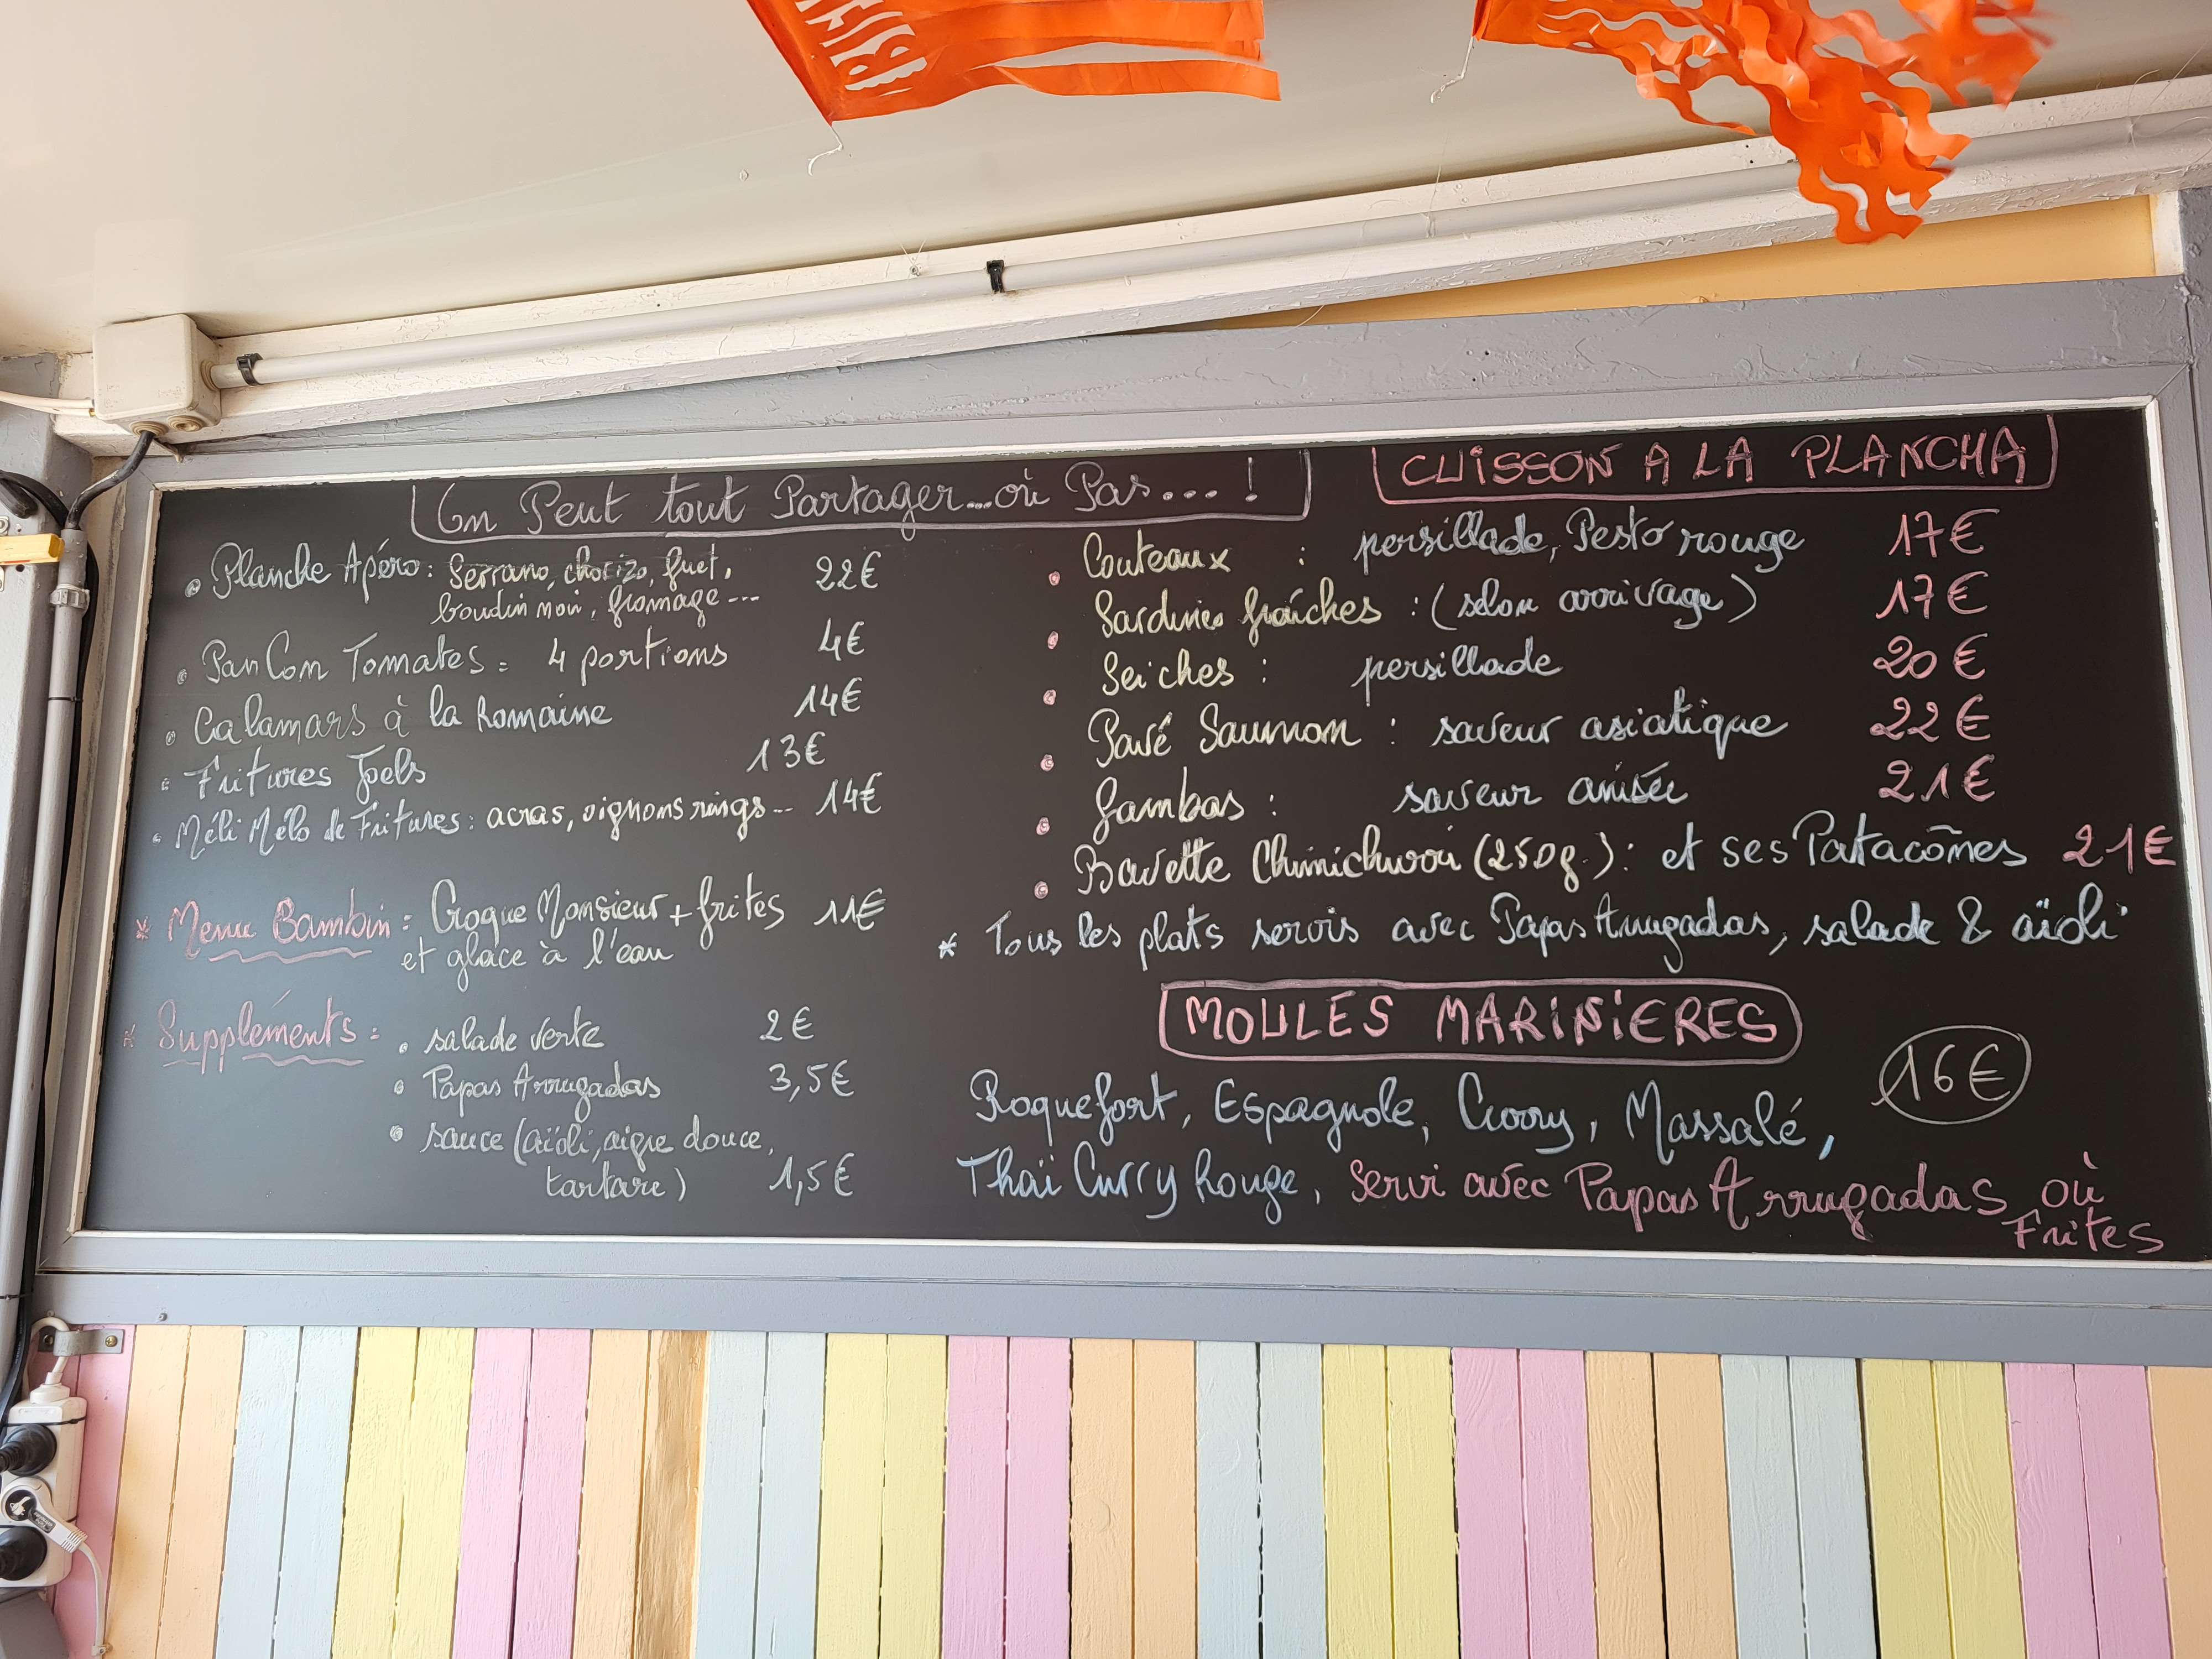 On Peut tout Partager...où Pas...!
• Planche Apéro : Serrano, chorizo, fuet, 22€
boudin noir, fromage...
• Pan Con Tomates = 4 portions 4€
• Calamars à la Romaine 14€
• Fritures Joels 13€
• Méli Mélo de Fritures : acras, oignons rings... 14€
* Menu Bambin : Croque Monsieur + frites 11€
et glace à l'eau
* Suppléments : • salade verte 2€
• Papas Arrugadas 3,5€
• sauce (aïoli, aigre douce,
tartare) 1,5€
CUISSON A LA PLANCHA
• Couteaux : persillade, Pesto rouge 17€
• Sardines fraîches : (selon arrivage) 17€
• Seiches : persillade 20€
• Pavé Saumon : saveur asiatique 22€
• Gambas : saveur anisée 21€
• Bavette Chimichurri (250g.) : et ses Patacônes 21€
* Tous les plats servis avec Papas Arrugadas, salade & aïoli
MOULES MARINIERES
16€
Roquefort, Espagnole, Curry, Massalé,
Thaï Curry Rouge, servi avec Papas Arrugadas où
Frites